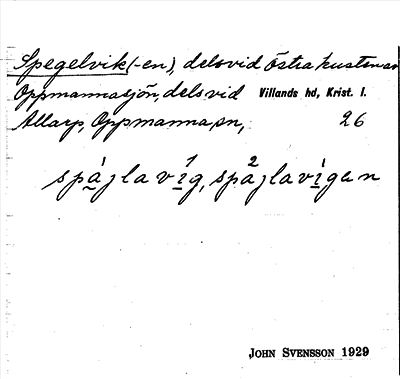 Spegelvik (-en), dels vid östra kusten av
Oppmannasjön, dels vid Villands hd, Krist. l.
Allarp, Oppmanna sn, 26
spá̱jlavi̱g, spá̱jlavi̱gen
JOHN SVENSSON 1929